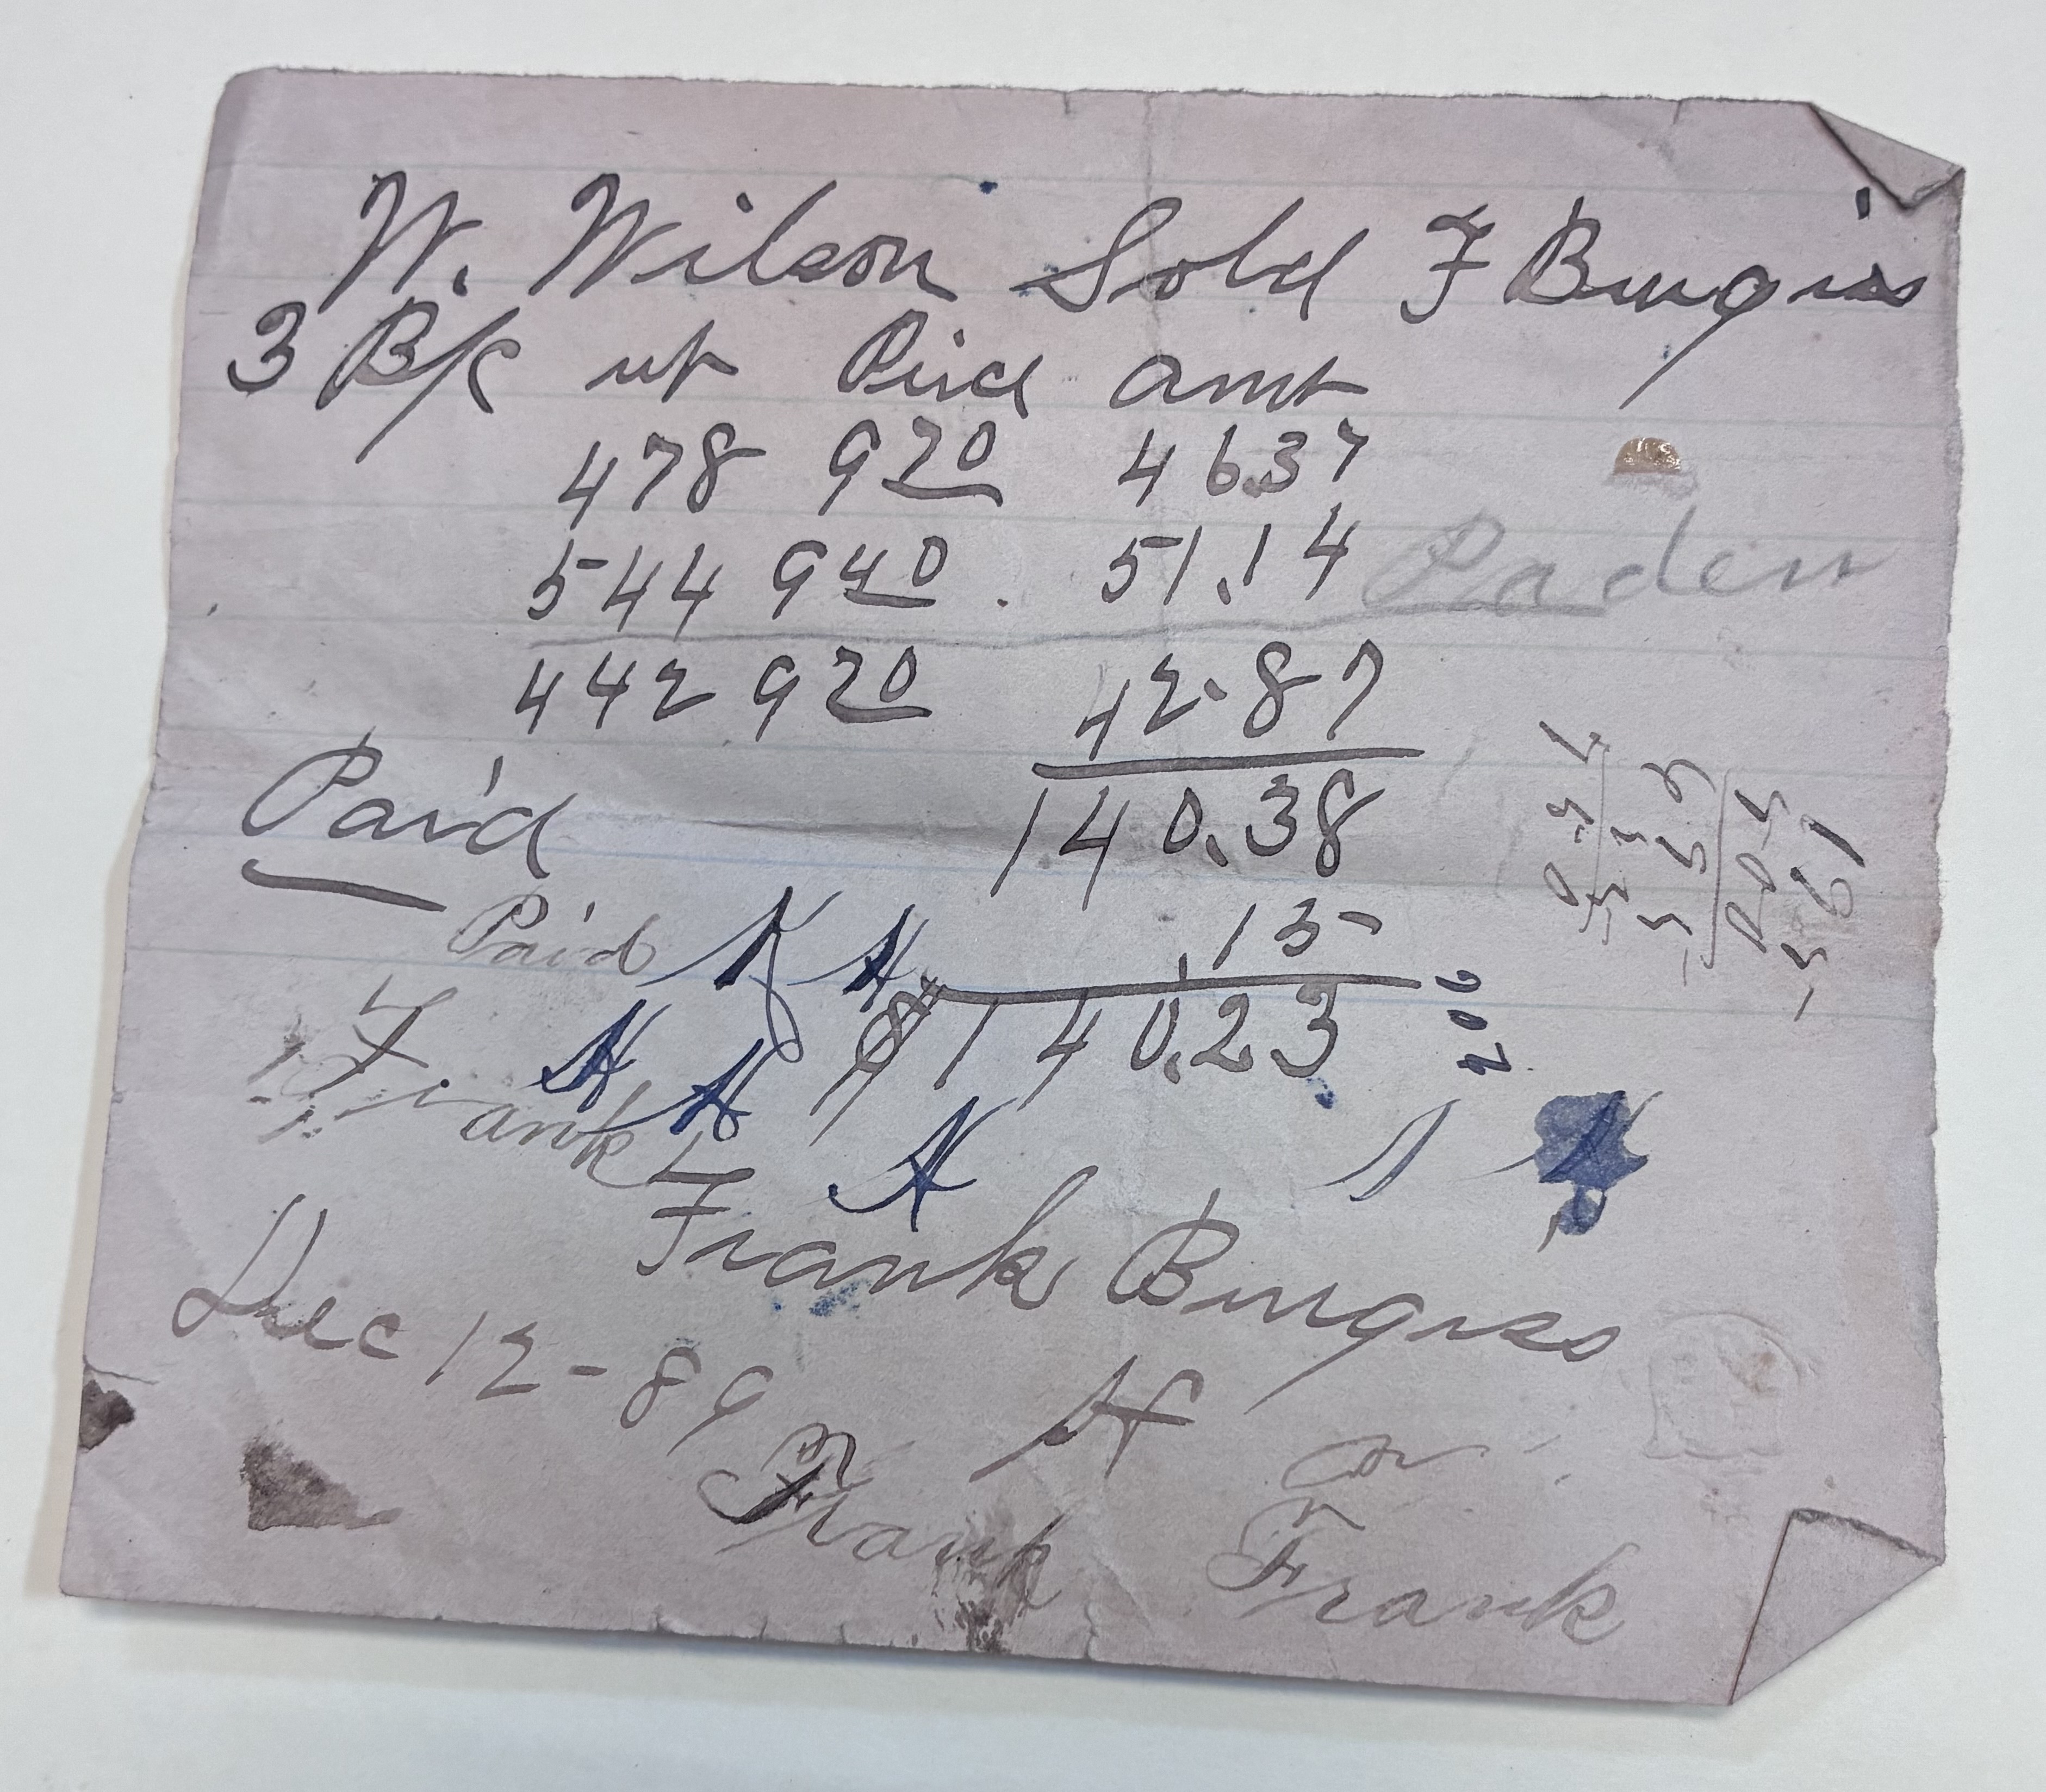 W. Wilson Sold F Burgiss
3 B/C wt Pric amt
478 9 70 46.37
544 9 40 51.14 Paden
442 9 70 42.87
Paid 140.38
Paid .15
140.23
206
Frank
Frank Burgess
Dec 12-89
Frank Frank